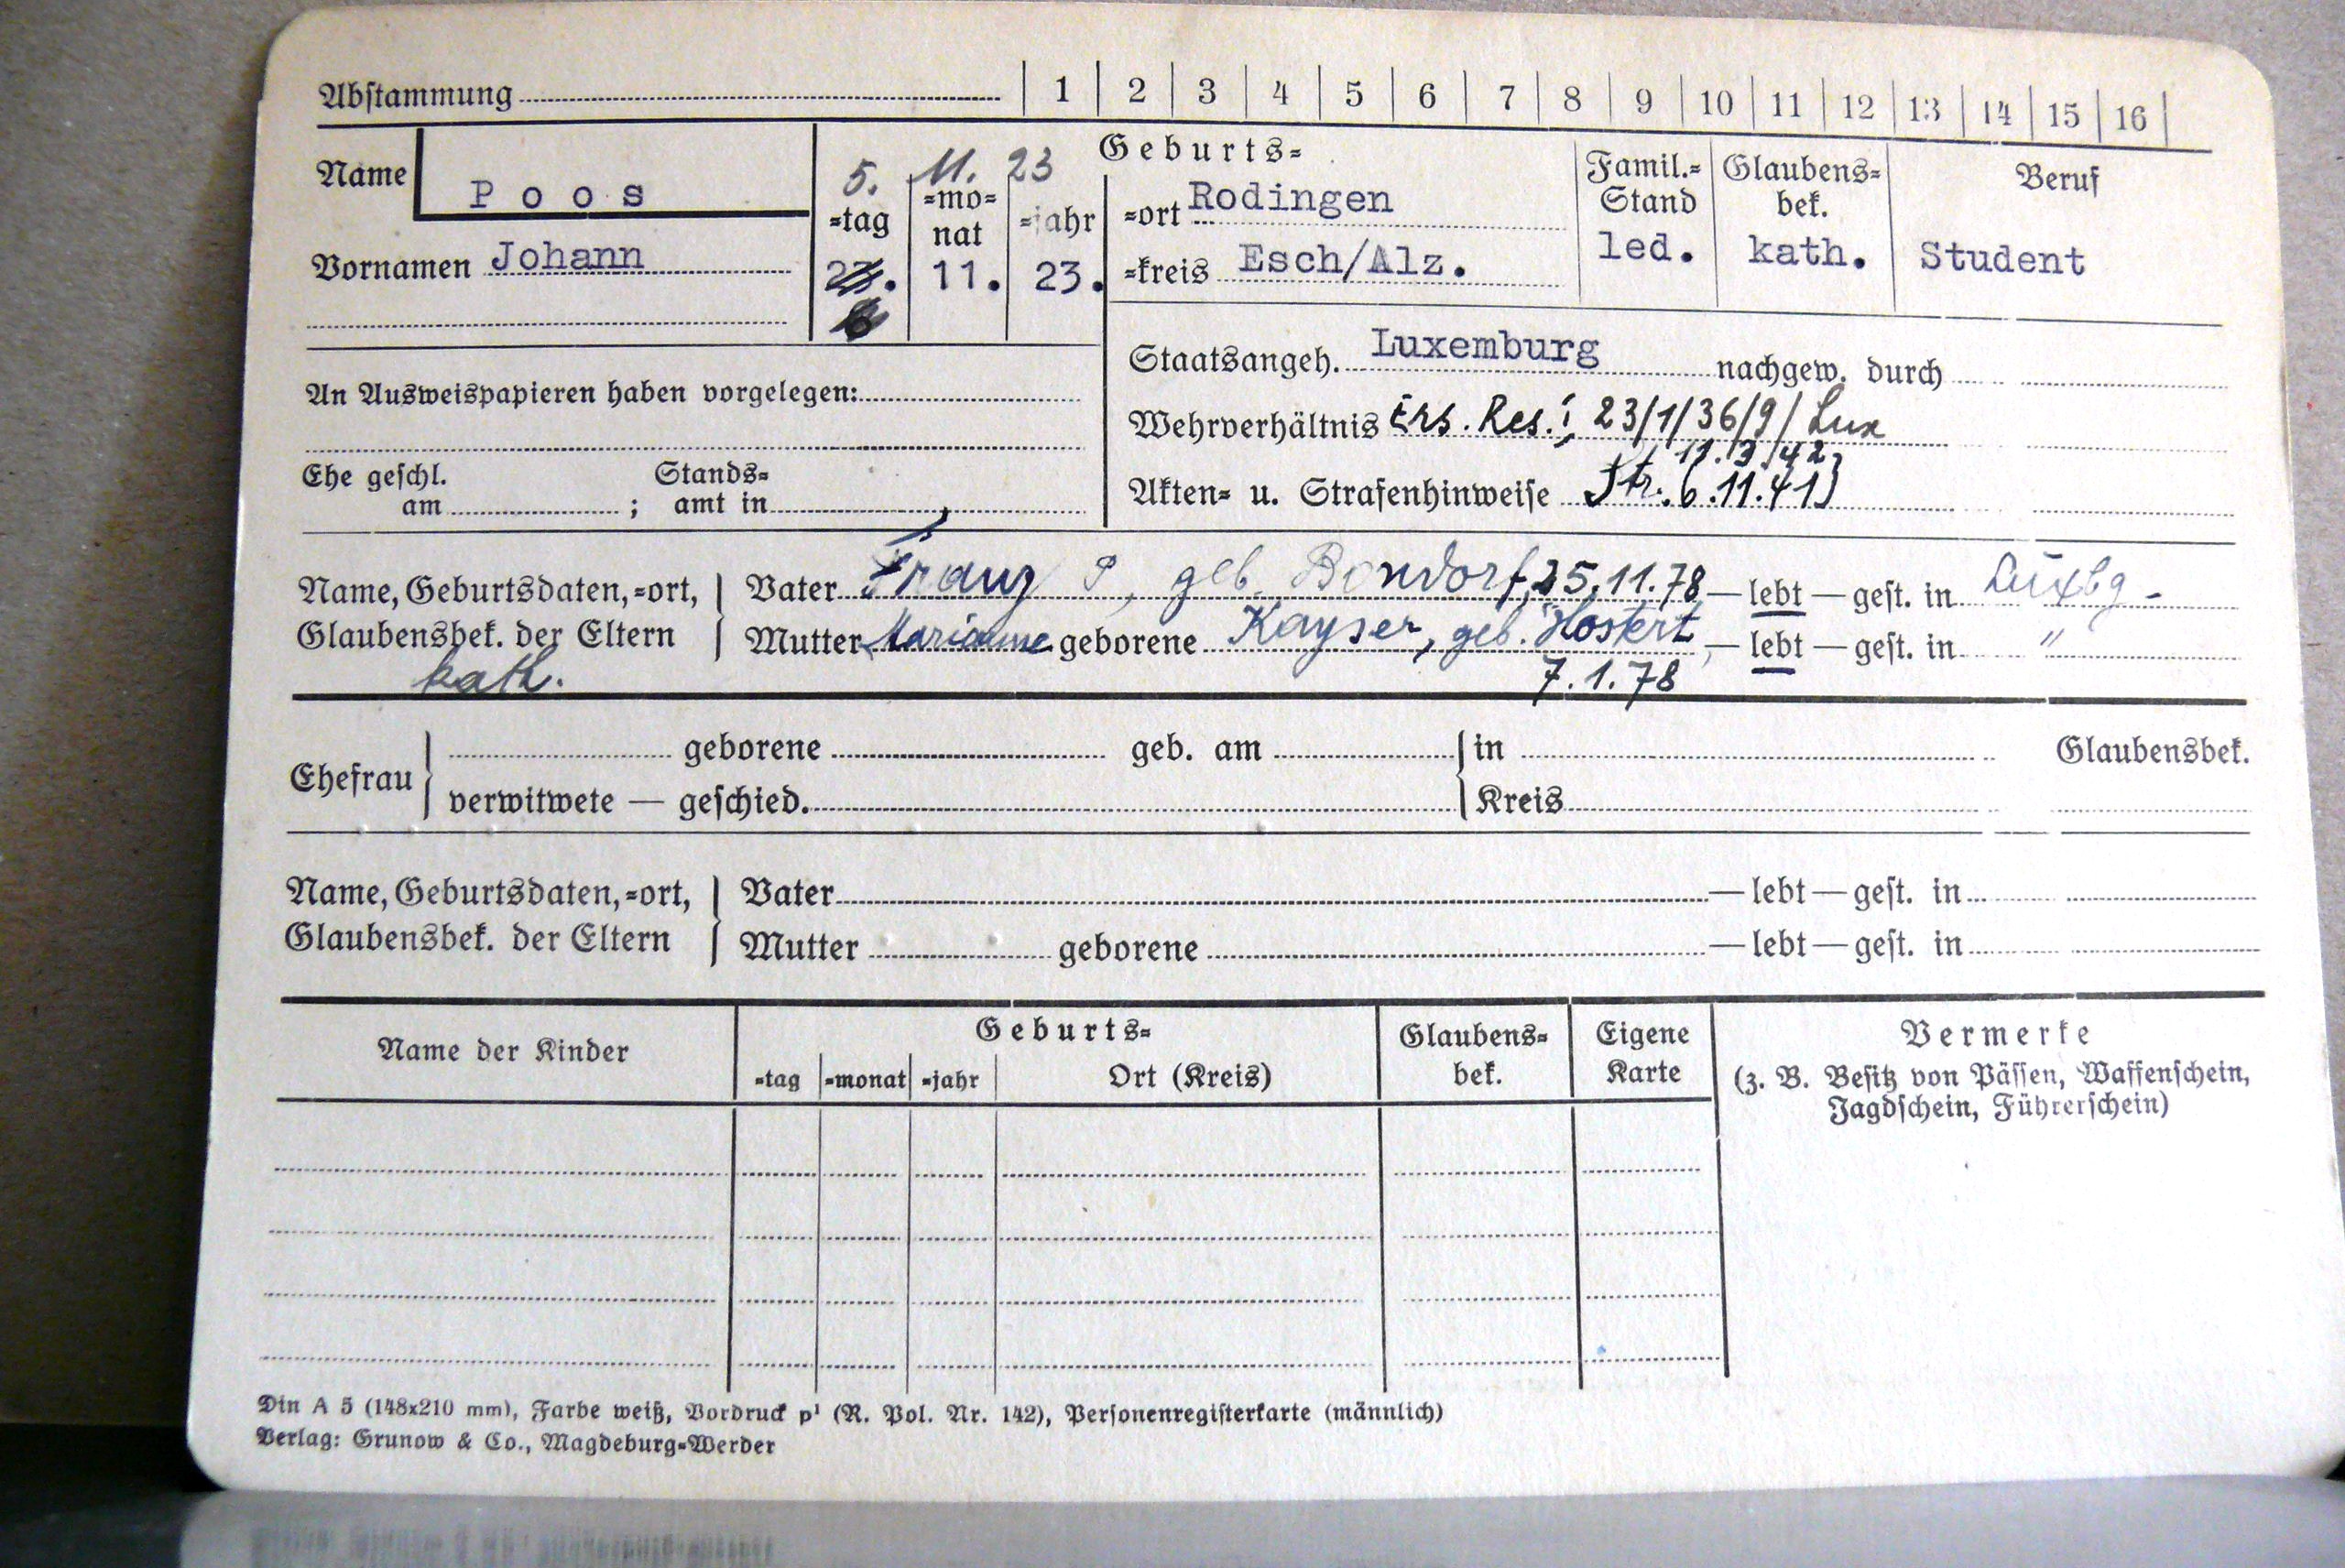 Abstammung 1 2 3 4 5 6 7 8 9 10 11 12 13 14 15 16
Name Poos
Vornamen Johann
5. 11. 23
Geburts=
=tag =mo=nat =jahr
23. 11. 23.
=ort Rodingen
=kreis Esch/Alz.
Famil.=Stand led.
Glaubens=bek. kath.
Beruf Student
An Ausweispapieren haben vorgelegen:
Ehe geschl. am ; Stands=amt in
Staatsangeh. Luxemburg nachgew. durch
Wehrverhältnis Ers. Res. I, 23/1/36/9/Lux
11.3.42
Akten= u. Strafenhinweise Str. 6.11.41
Name, Geburtsdaten,=ort, Glaubensbek. der Eltern kath.
Vater Franz P, geb. Bondorf, 25.11.78 — lebt — gest. in Luxbg -
Mutter Marianne geborene Kayser, geb. Hostert — lebt — gest. in "
7.1.78
Ehefrau geborene geb. am in Glaubensbek.
verwitwete — geschied. Kreis
Name, Geburtsdaten,=ort, Glaubensbek. der Eltern
Vater — lebt — gest. in
Mutter geborene — lebt — gest. in
Name der Kinder
Geburts=
=tag =monat =jahr Ort (Kreis)
Glaubens=bek.
Eigene Karte
Vermerke
(z. B. Besitz von Pässen, Waffenschein,
Jagdschein, Führerschein)
Din A 5 (148x210 mm), Farbe weiß, Vordruck p¹ (R. Pol. Nr. 142), Personenregisterkarte (männlich)
Verlag: Grunow & Co., Magdeburg=Werder